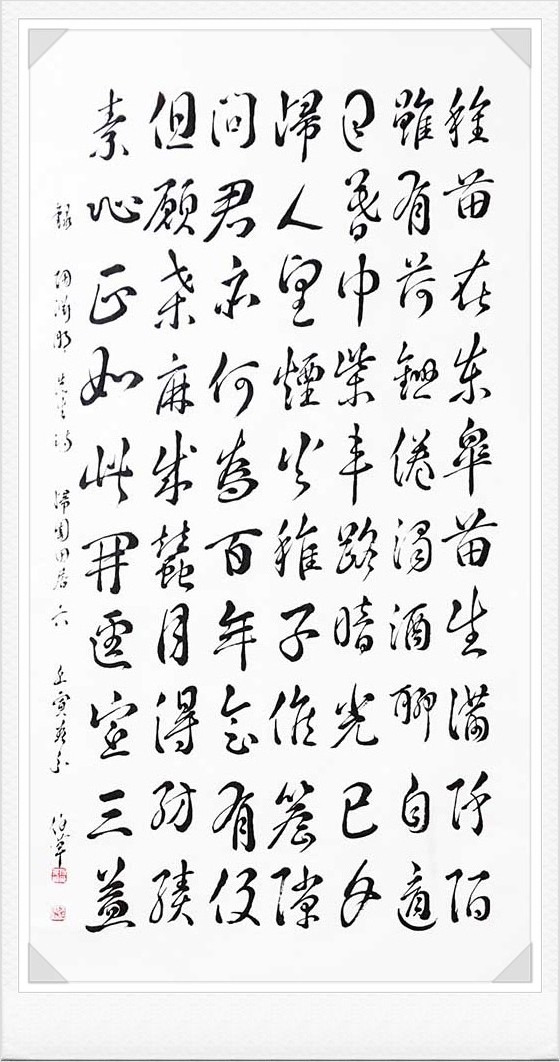 種苗在東皋苗生滿阡陌
雖有荷鋤倦濁酒聊自適
日暮巾柴車路暗光已夕
歸人望煙火稚子候簷隙
問君亦何為百年會有役
但願桑麻成蠶月得紡績
素心正如此開逕望三益
錄 陶淵明先生詩 歸園田居六 壬寅